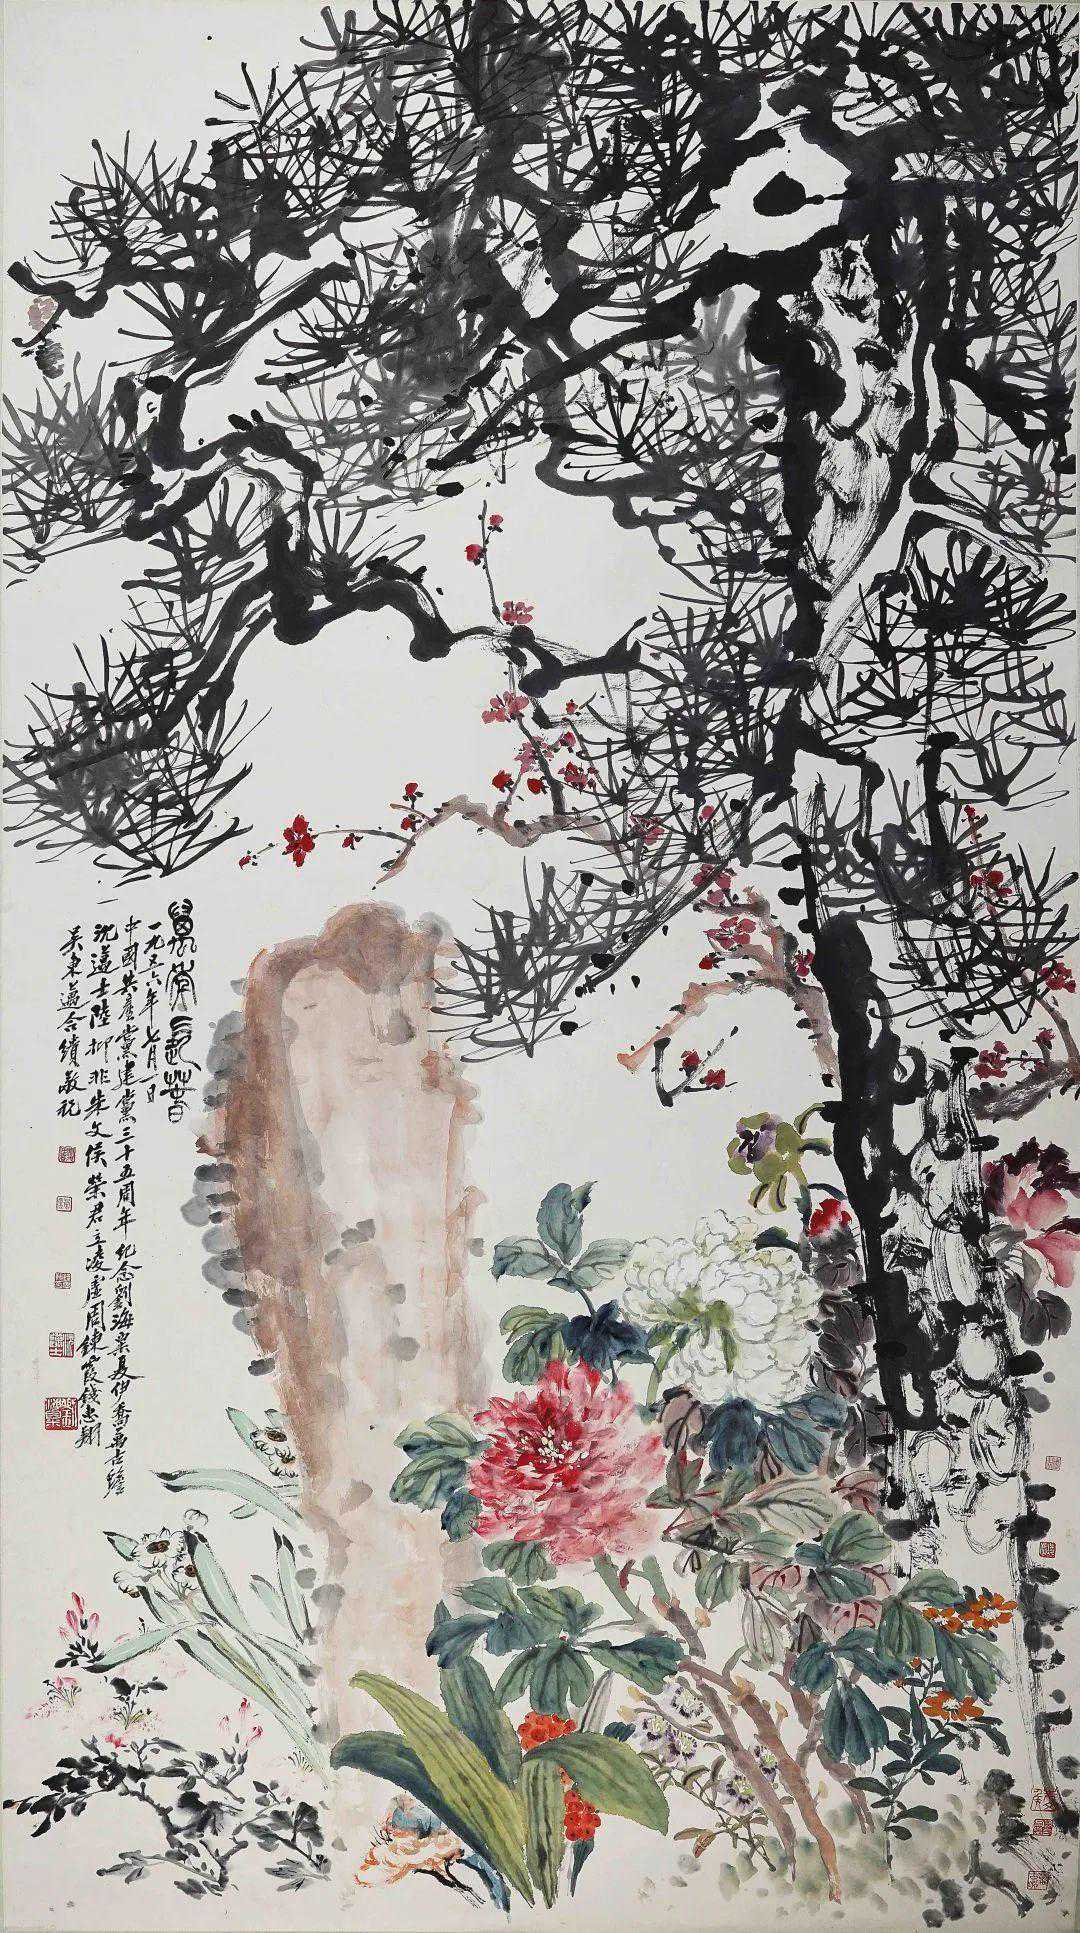 萬年長春
一九五六年七月一日
中國共產黨建黨三十五周年紀念劉海粟夏伊喬萬古蟾
沈邁士陸抑非朱文侯榮君立凌虛周鍊霞錢
吳東邁合繢敬祝